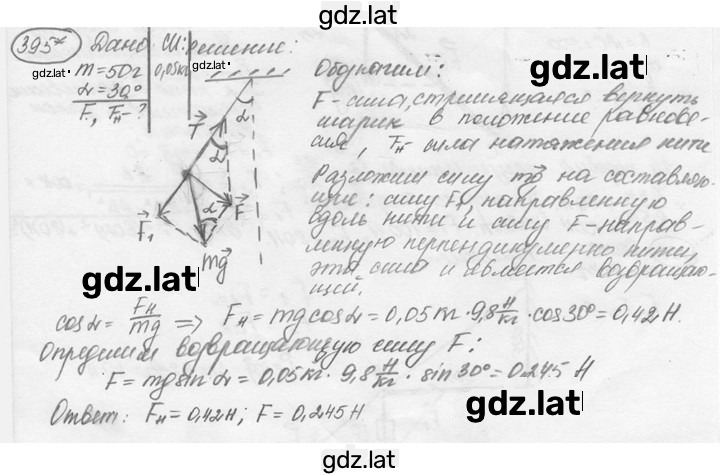 gdz.lat
395* Дано: СИ: Решение:
gdz.lat
m=50г 0,05кг gdz.lat
α=30°
F, Fн-?
Обозначим:
F-сила, стремящаяся вернуть
шарик в положение равнове-
сия, Fн сила натяжения нити
Разложим силу mg на составляю-
щие: силу F₁, направленную
вдоль нити и силу F-направ-
ленную перпендикулярно нити,
эта сила и является возвращаю-
щей.
α
T
α
α
F
F₁
mg
gdz.lat
gdz.lat
cosα = Fн/mg ⇒ Fн = mgcosα = 0,05кг · 9,8 Н/кг · cos30° = 0,42 Н.
Определим возвращающую силу F:
F = mgsinα = 0,05кг · 9,8 Н/кг · sin30° = 0,245 Н
Ответ: Fн = 0,42Н; F = 0,245Н.
gdz.lat
gdz.lat